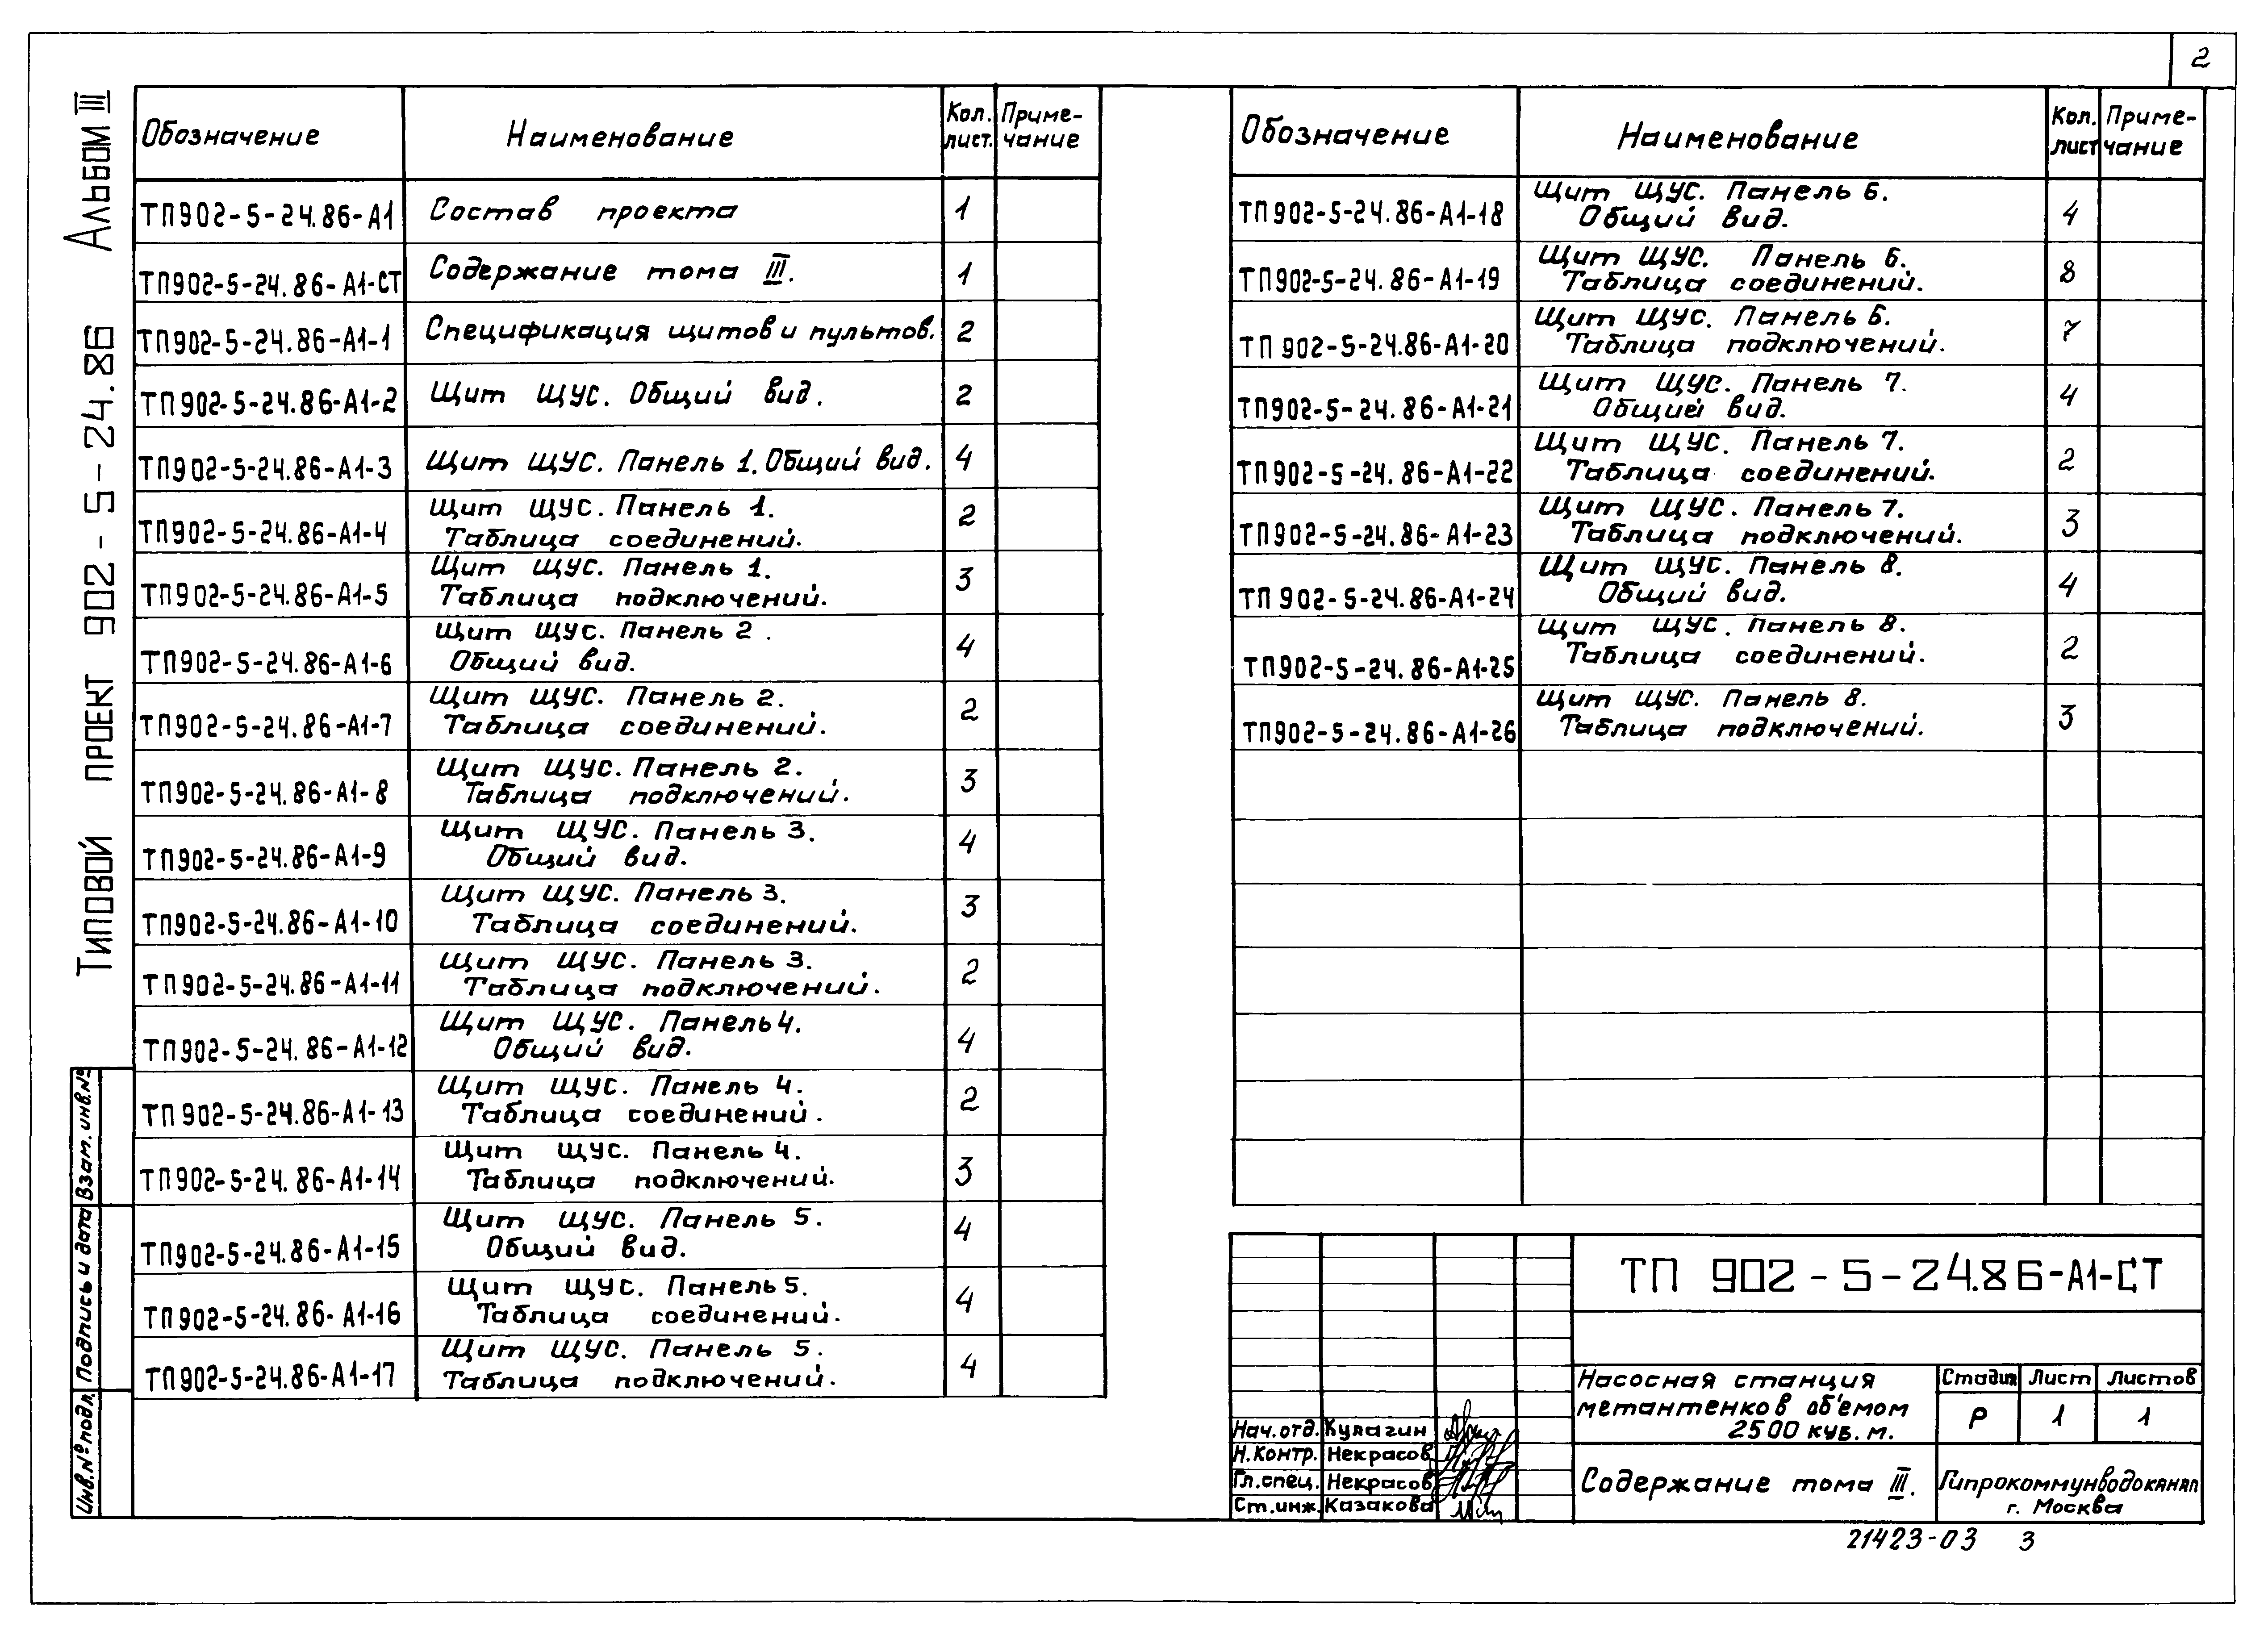 2
Альбом III
Типовой проект 902-5-24.86
Обозначение Наименование Кол. лист. Приме-чание
ТП902-5-24.86-А1 Состав проекта 1
ТП902-5-24.86-А1-СТ Содержание тома III. 1
ТП902-5-24.86-А1-1 Спецификация щитов и пультов. 2
ТП902-5-24.86-А1-2 Щит ЩУС. Общий вид. 2
ТП902-5-24.86-А1-3 Щит ЩУС. Панель 1. Общий вид. 4
ТП902-5-24.86-А1-4 Щит ЩУС. Панель 1.
Таблица соединений. 2
ТП902-5-24.86-А1-5 Щит ЩУС. Панель 1.
Таблица подключений. 3
ТП902-5-24.86-А1-6 Щит ЩУС. Панель 2.
Общий вид. 4
ТП902-5-24.86-А1-7 Щит ЩУС. Панель 2.
Таблица соединений. 2
ТП902-5-24.86-А1-8 Щит ЩУС. Панель 2.
Таблица подключений. 3
ТП902-5-24.86-А1-9 Щит ЩУС. Панель 3.
Общий вид. 4
ТП902-5-24.86-А1-10 Щит ЩУС. Панель 3.
Таблица соединений. 3
ТП902-5-24.86-А1-11 Щит ЩУС. Панель 3.
Таблица подключений. 2
ТП902-5-24.86-А1-12 Щит ЩУС. Панель 4.
Общий вид. 4
ТП902-5-24.86-А1-13 Щит ЩУС. Панель 4.
Таблица соединений. 2
ТП902-5-24.86-А1-14 Щит ЩУС. Панель 4.
Таблица подключений. 3
ТП902-5-24.86-А1-15 Щит ЩУС. Панель 5.
Общий вид. 4
ТП902-5-24.86-А1-16 Щит ЩУС. Панель 5.
Таблица соединений. 4
ТП902-5-24.86-А1-17 Щит ЩУС. Панель 5.
Таблица подключений. 4
Обозначение Наименование Кол. лист Приме-чание
ТП902-5-24.86-А1-18 Щит ЩУС. Панель 6.
Общий вид. 4
ТП902-5-24.86-А1-19 Щит ЩУС. Панель 6.
Таблица соединений. 8
ТП 902-5-24.86-А1-20 Щит ЩУС. Панель 6.
Таблица подключений. 7
ТП902-5-24.86-А1-21 Щит ЩУС. Панель 7.
Общий вид. 4
ТП902-5-24.86-А1-22 Щит ЩУС. Панель 7.
Таблица соединений. 2
ТП902-5-24.86-А1-23 Щит ЩУС. Панель 7.
Таблица подключений. 3
ТП 902-5-24.86-А1-24 Щит ЩУС. Панель 8.
Общий вид. 4
ТП902-5-24.86-А1-25 Щит ЩУС. Панель 8.
Таблица соединений. 2
ТП902-5-24.86-А1-26 Щит ЩУС. Панель 8.
Таблица подключений. 3
Взам. инв.№
Подпись и дата
Инв.№ подл.
ТП 902-5-24.86-А1-СТ
Насосная станция
метантенков объемом
2500 куб. м.
Стадия Лист Листов
Р 1 1
Нач. отд. Кулагин
Н. контр. Некрасов
Гл. спец. Некрасов
Ст. инж. Казакова
Содержание тома III.
Гипрокоммунводоканал
г. Москва
21423-03 3